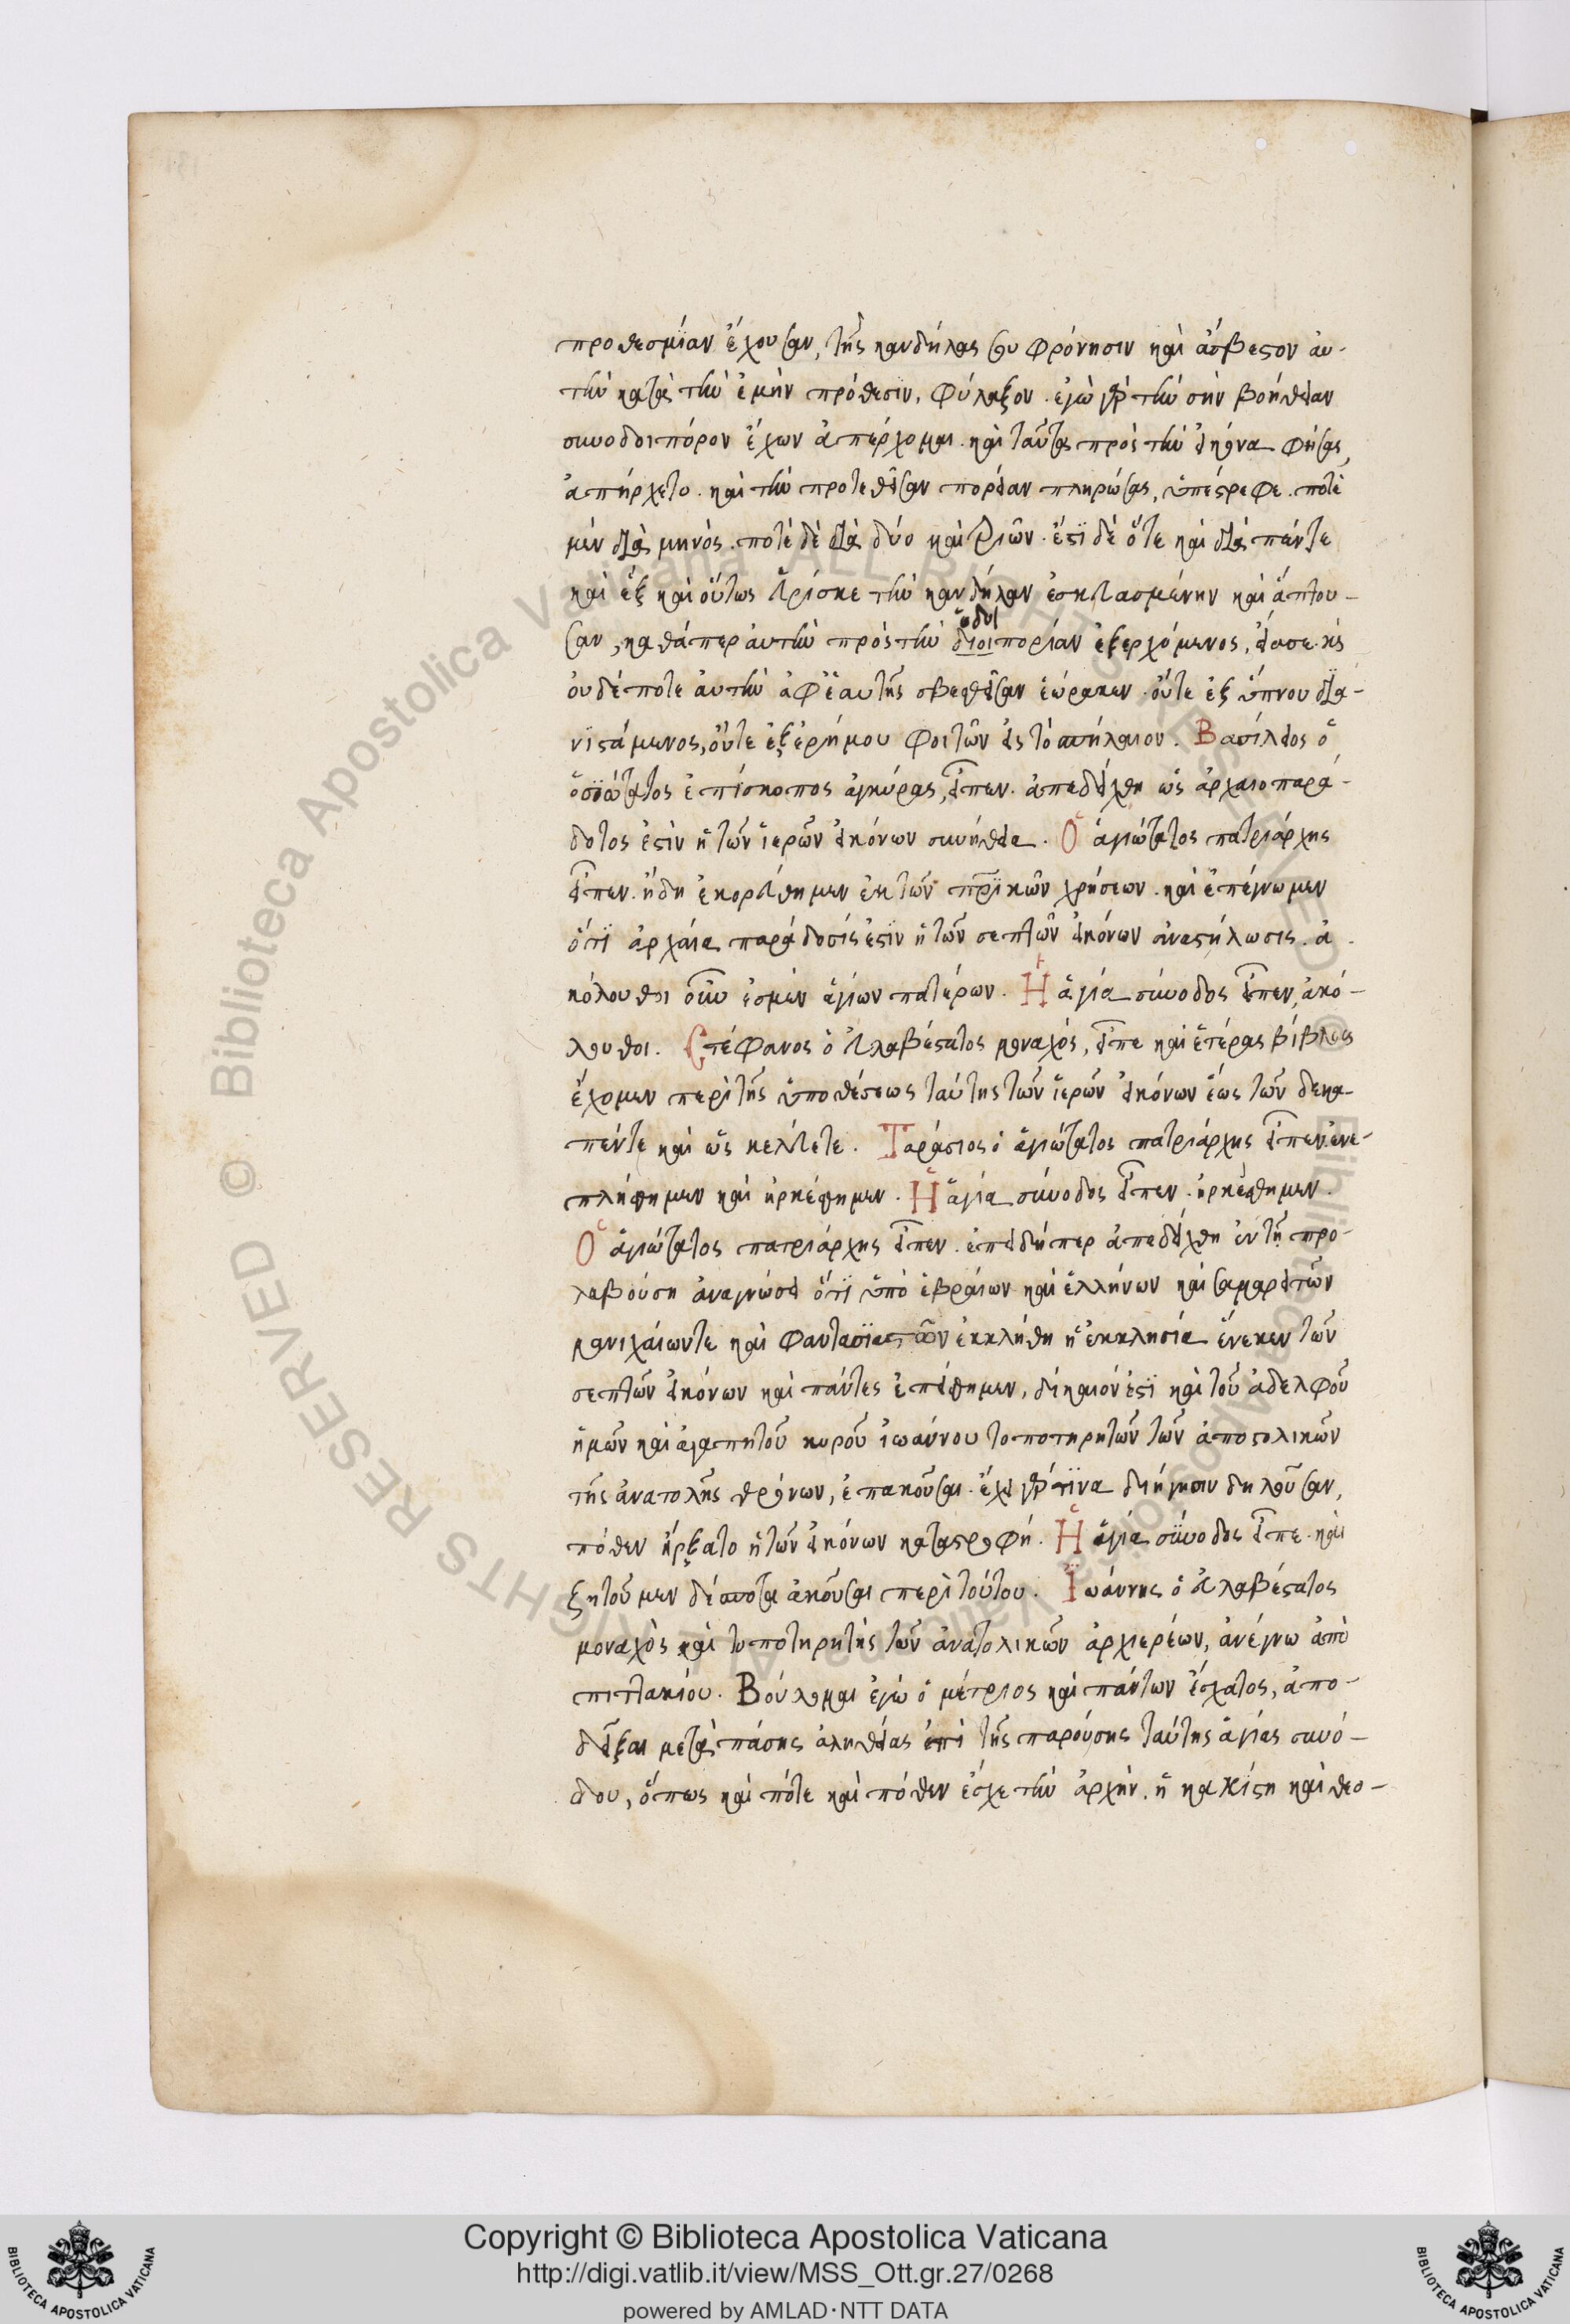 προθεσμίαν ἔχουσαν, τῆς κανδήλας σου φρόνησιν καὶ ἄσβεστον αὐ-
τὴν κατὰ τὴν ἐμὴν πρόθεσιν, φύλαξον. ἐγὼ γὰρ τὴν σὴν βοήθειαν
συνοδοιπόρον ἔχων ἀπέρχομαι. καὶ ταῦτα πρὸς τὴν εἰκόνα φήσας,
ἀπήρχετο. καὶ τὴν προτεθεῖσαν πορείαν πληρώσας, ὑπέστρεφε. ποτὲ
μὲν διὰ μηνός. ποτὲ δὲ διὰ δύο καὶ τριῶν. ἔστι δὲ ὅτε καὶ διὰ πέντε
καὶ ἓξ καὶ οὕτως εὕρισκε τὴν κανδήλαν ἐσκευασμένην καὶ ἅπτου-
σαν, καθάπερ αὐτὴν πρὸς τὴν διοιπορίαν ἐξερχόμενος, εἴασε. καὶ
ὁδοι
οὐδέποτε αὐτὴν ἀφ' ἑαυτῆς σβεσθεῖσαν ἑώρακεν. οὔτε ἐξ ὕπνου δια-
νιστάμενος, οὔτε ἐξ ἐρήμου φοιτῶν εἰς τὸ σπήλαιον. Βασίλειος ὁ
ὁσιώτατος ἐπίσκοπος ἀγκύρας, εἶπεν. ἀπεδείχθη ὡς ἀρχαιοπαρά-
δοτος ἐστὶν ἡ τῶν ἱερῶν εἰκόνων συνήθεια. Ὁ ἁγιώτατος πατριάρχης
εἶπεν. ἤδη ἐκορεύθημεν ἐκ τῶν πρικῶν χρήσεων. καὶ ἐπέγνωμεν
ὅτι ἀρχαία παράδοσίς ἐστιν ἡ τῶν σεπτῶν εἰκόνων ἀναστήλωσις. ἀ-
κόλουθοι οὖν ἐσμὲν ἁγίων πατέρων. Ἡ ἁγία σύνοδος εἶπεν, ἀκό-
λουθοι. Στέφανος ὁ εὐλαβέστατος μοναχός, εἶπε καὶ ἑτέρας βίβλους
ἔχομεν περὶ τῆς ὑποθέσεως ταύτης τῶν ἱερῶν εἰκόνων ἕως τῶν δεκα-
πέντε καὶ ὡς κελεύετε. Ταράσιος ὁ ἁγιώτατος πατριάρχης εἶπεν. ἐνε-
πλήσθημεν καὶ ἠρκέσθημεν. Ἡ ἁγία σύνοδος εἶπεν. ἠρκέσθημεν.
Ὁ ἁγιώτατος πατριάρχης εἶπεν. ἐπειδήπερ ἀπεδείχθη ἐν τῇ προ-
λαβούση ἀναγνώσει ὅτι ὑπὸ ἑβραίων καὶ ἑλλήνων καὶ σαμαρειτῶν
μανιχαίωντε καὶ φαντασιαστῶν ἐκκλήθη ἡ ἐκκλησία ἕνεκεν τῶν
σεπτῶν εἰκόνων καὶ πάντες ἐπείσθημεν, δίκαιόν ἐστι καὶ τοῦ ἀδελφοῦ
ἡμῶν καὶ ἀγαπητοῦ κυροῦ ἰωάννου τοποτηρητῶν τῶν ἀποστολικῶν
τῆς ἀνατολῆς θρόνων, ἐπακοῦσαι. ἔχει γὰρ τινα διήγησιν δηλοῦσαν,
πόθεν ἤρξατο ἡ τῶν εἰκόνων καταστροφή. Ἡ ἁγία σύνοδος εἶπε. καὶ
ζητοῦμεν δέσποτα ἀκοῦσαι περὶ τούτου. Ἰωάννης ὁ εὐλαβέστατος
μοναχὸς καὶ τοποτηρητὴς τῶν ἀνατολικῶν ἀρχιερέων, ἀνέγνω ἀπὸ
πιττακίου. Βούλομαι ἐγὼ ὁ μέτριος καὶ πάντων ἔσχατος, ἀπο-
δεῖξαι μετὰ πάσης ἀληθείας ἐπὶ τῆς παρούσης ταύτης ἁγίας συνό-
δου, ὅπως καὶ πότε καὶ πόθεν ἔσχε τὴν ἀρχήν. ἡ κακίστη καὶ θεο-
Copyright © Biblioteca Apostolica Vaticana
http://digi.vatlib.it/view/MSS_Ott.gr.27/0268
powered by AMLAD·NTT DATA